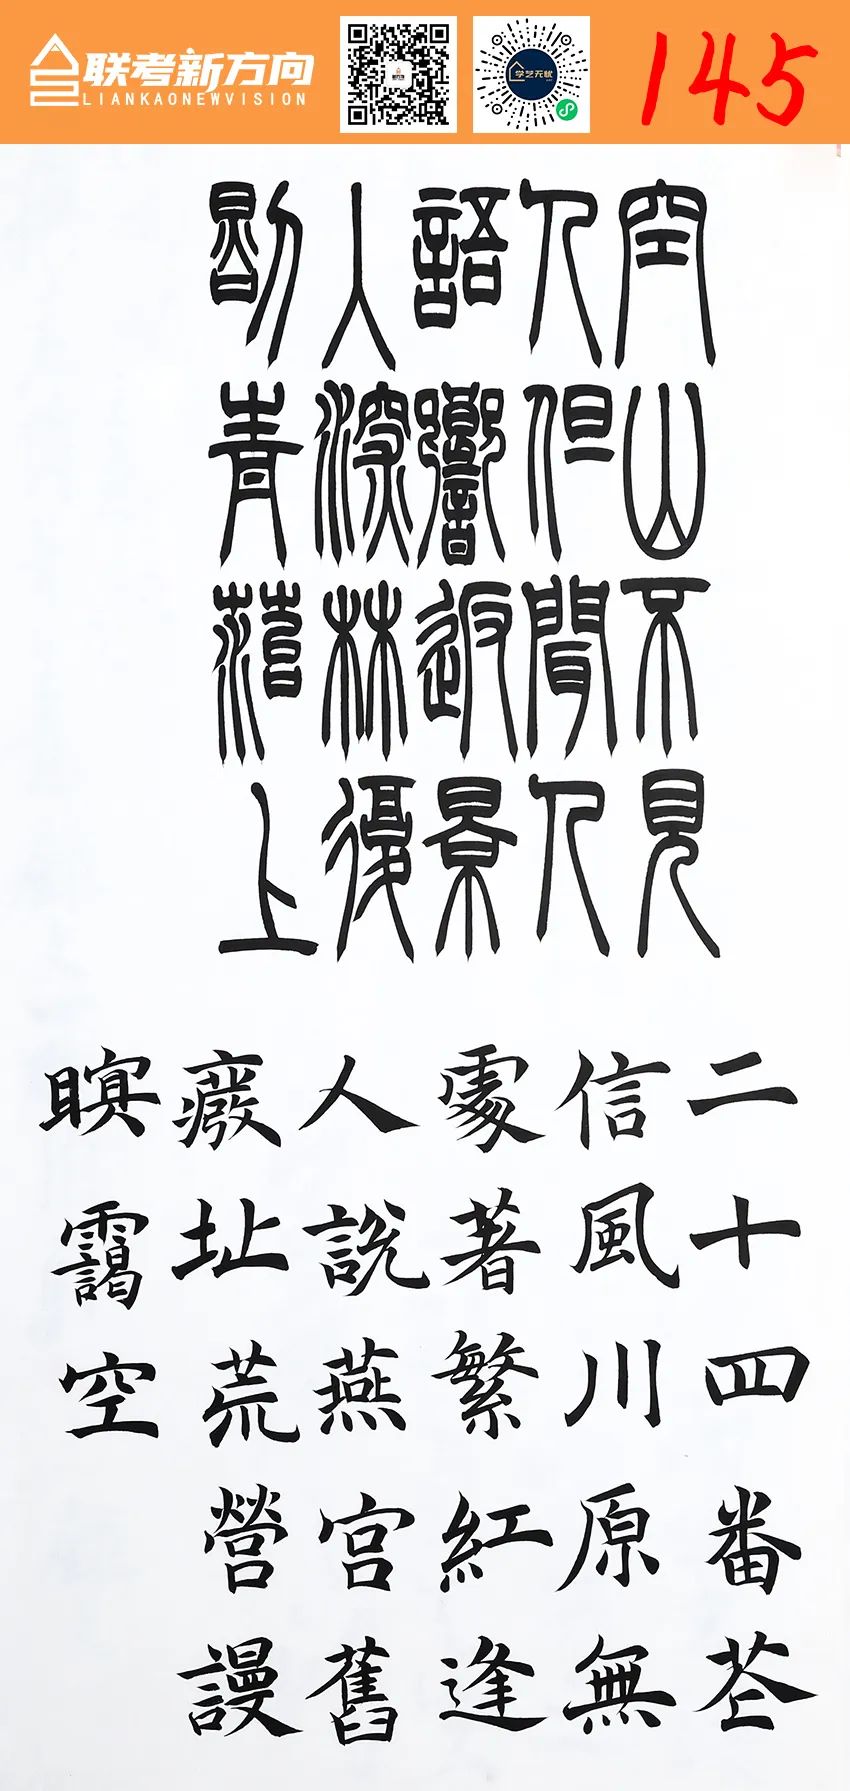 联考新方向
LIANKAONEWVISION
学艺无忧
145
空山不見
人但聞人
語響返景
入深林復
照青菭上
二十四番芲
信風川原無
處著繁紅逢
人説燕宮舊
癈址荒營謾
暝靄空